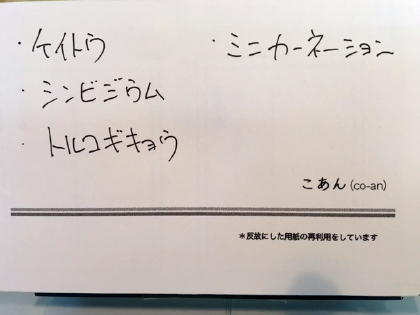 ・ケイトウ
・シンビジウム
・トルコギキョウ
・ミニカーネーション
こあん(co-an)
*反故にした用紙の再利用をしています